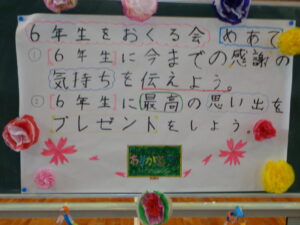 6年生をおくる会 めあて
① 6年生に今までの感謝の
気持ちを伝えよう。
② 6年生に最高の思い出を
プレゼントをしよう。